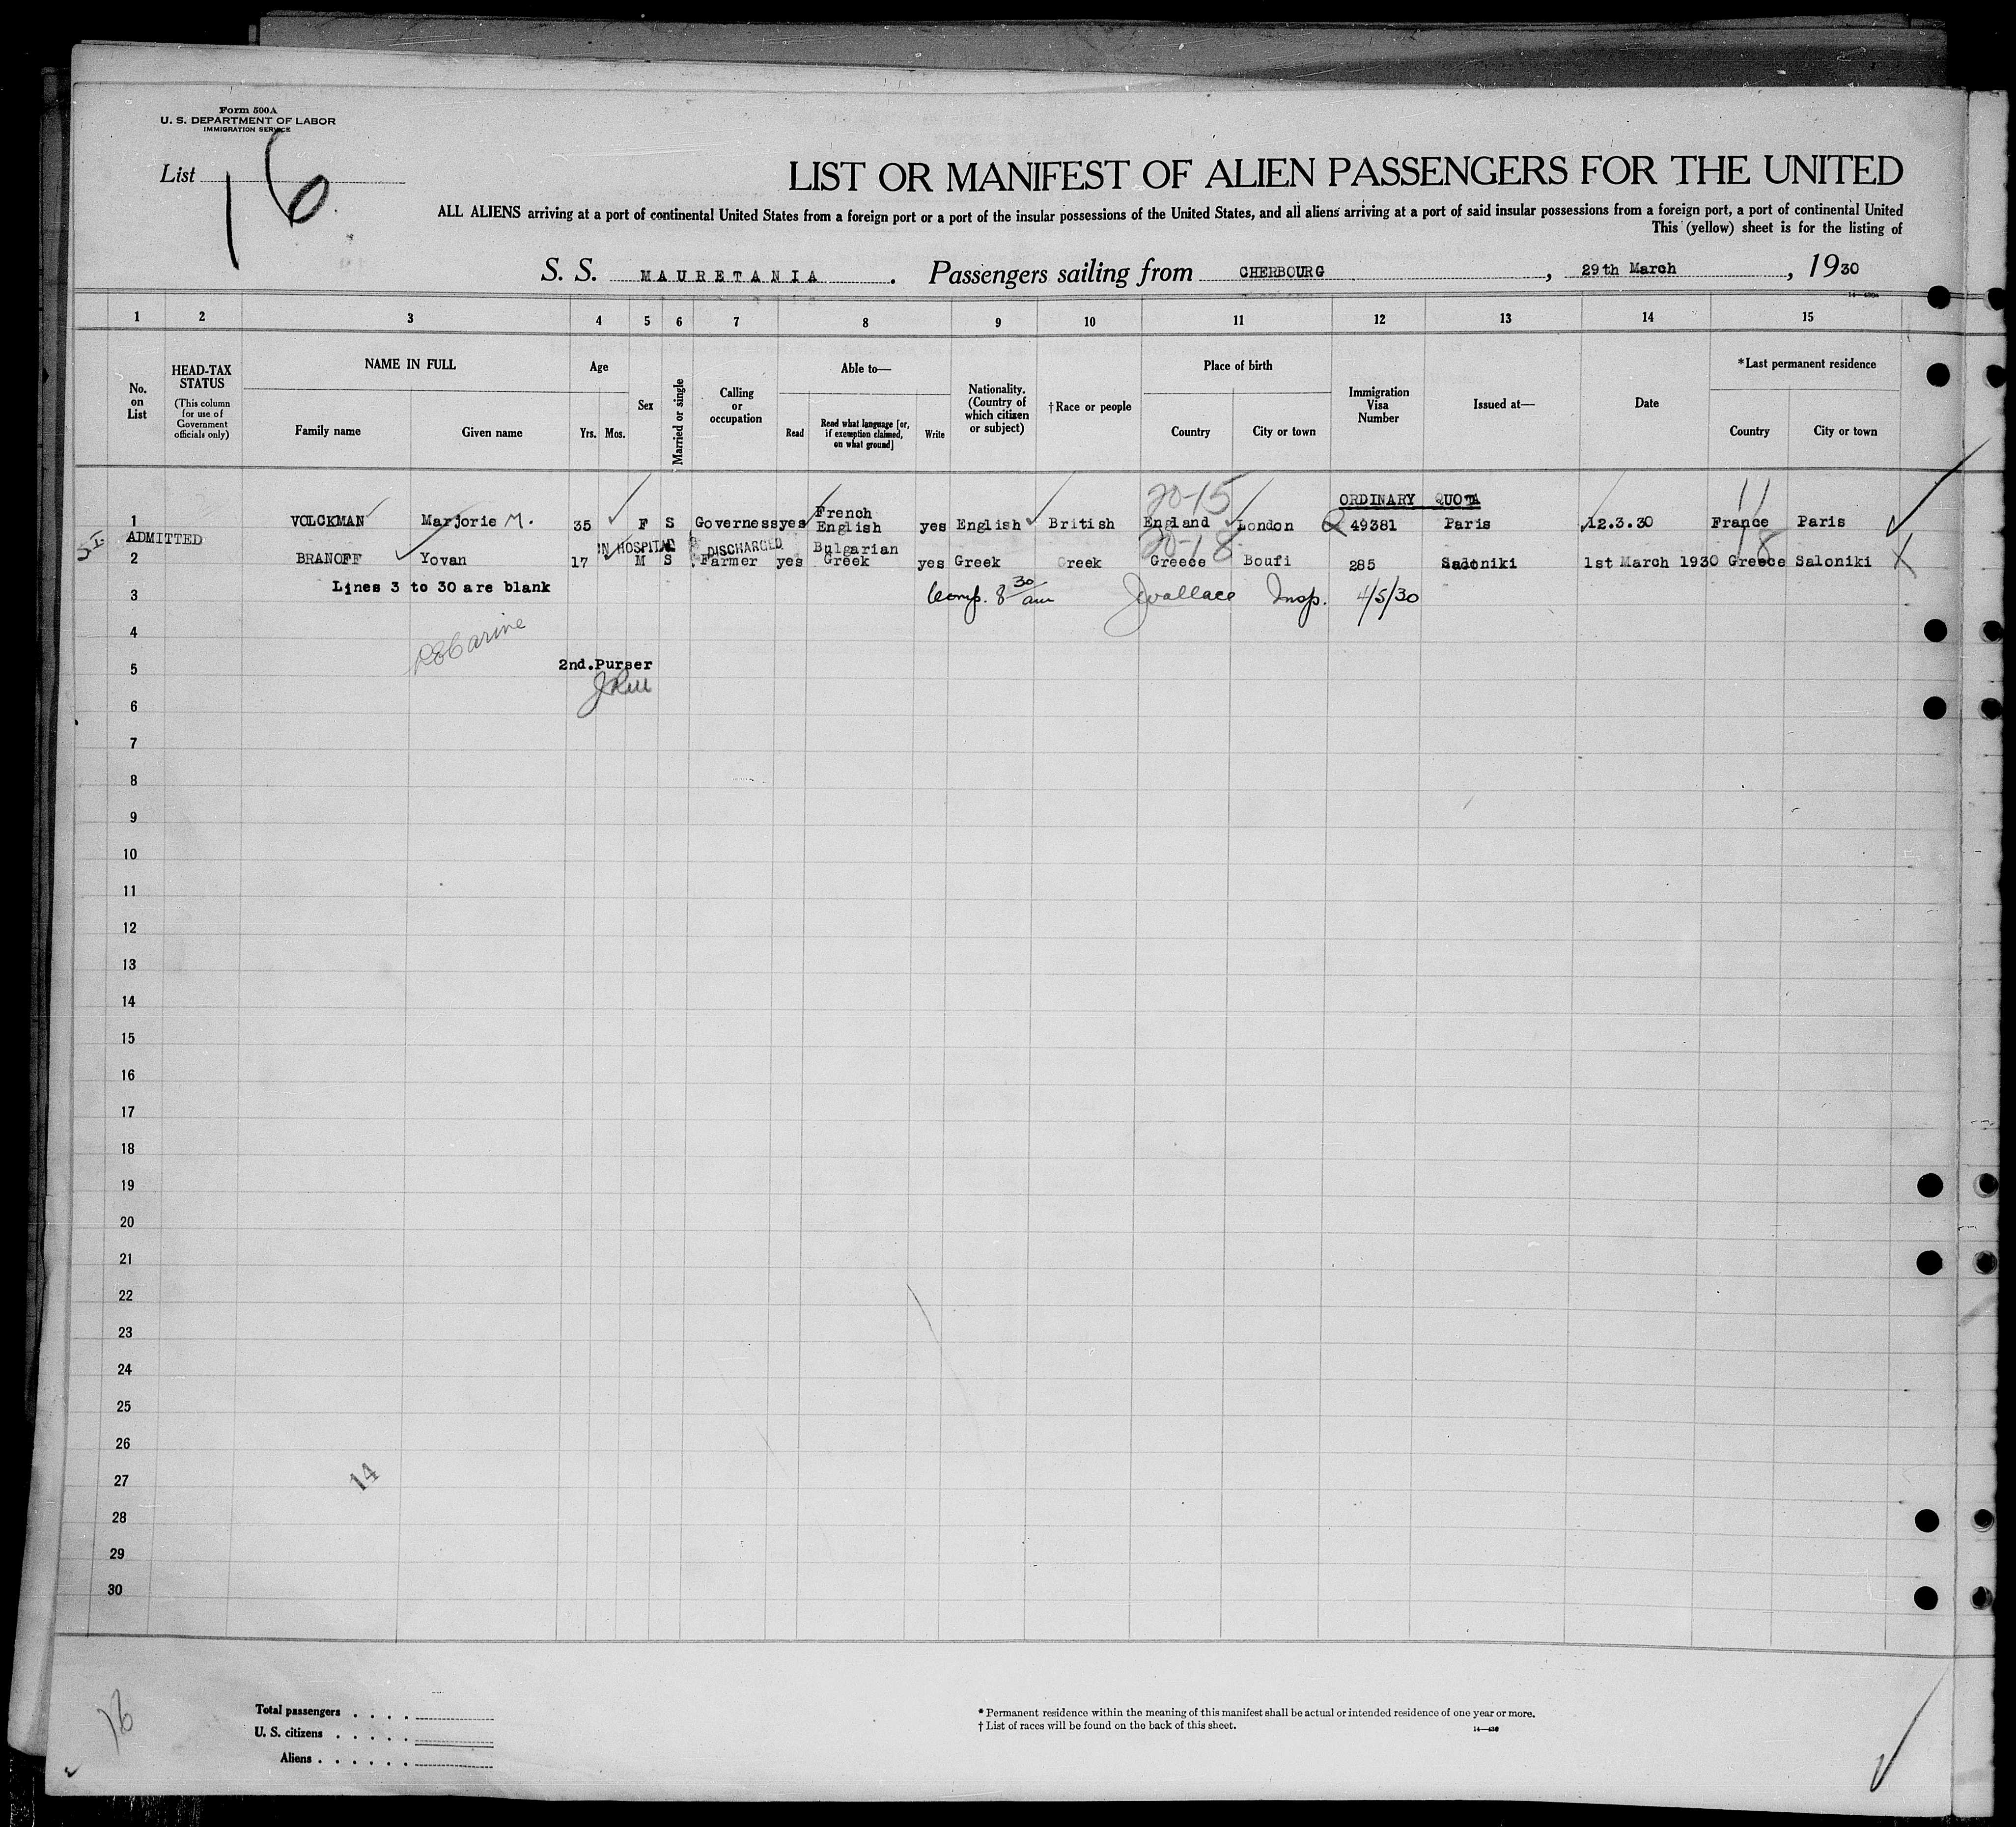 Form 500A
U. S. DEPARTMENT OF LABOR
IMMIGRATION SERVICE
List 16
LIST OR MANIFEST OF ALIEN PASSENGERS FOR THE UNITED
ALL ALIENS arriving at a port of continental United States from a foreign port or a port of the insular possessions of the United States, and all aliens arriving at a port of said insular possessions from a foreign port, a port of continental United
This (yellow) sheet is for the listing of
S. S. MAURETANIA. Passengers sailing from CHERBOURG, 29th March, 1930
1 2 3 4 5 6 7 8 9 10 11 12 13 14 15
No. on List
HEAD-TAX STATUS
(This column for use of Government officials only)
NAME IN FULL
Family name Given name
Age
Yrs. Mos.
Sex
Married or single
Calling or occupation
Able to—
Read
Read what language [or, if exemption claimed, on what ground]
Write
Nationality. (Country of which citizen or subject)
†Race or people
Place of birth
Country City or town
Immigration Visa Number
Issued at—
Date
*Last permanent residence
Country City or town
20-15 ORDINARY QUOTA 11
1 VOLCKMAN Marjorie M. 35 F S Governess yes French English yes English British England London Q 49381 Paris 12.3.30 France Paris
S.I. ADMITTED IN HOSPITAL DISCHARGED 20-18 18
2 BRANOFF Yovan 17 M S Farmer yes Bulgarian Greek yes Greek Greek Greece Boufi 285 Saloniki 1st March 1930 Greece Saloniki
Lines 3 to 30 are blank
3 Comp. 8 30 am JWallace Insp. 4/5/30
4
5 2nd.Purser
6
7
8
9
10
11
12
13
14
15
16
17
18
19
20
21
22
23
24
25
26
27 14
28
29
30
16
Total passengers . . . .
U. S. citizens . . . . .
Aliens . . . . . .
* Permanent residence within the meaning of this manifest shall be actual or intended residence of one year or more.
† List of races will be found on the back of this sheet.